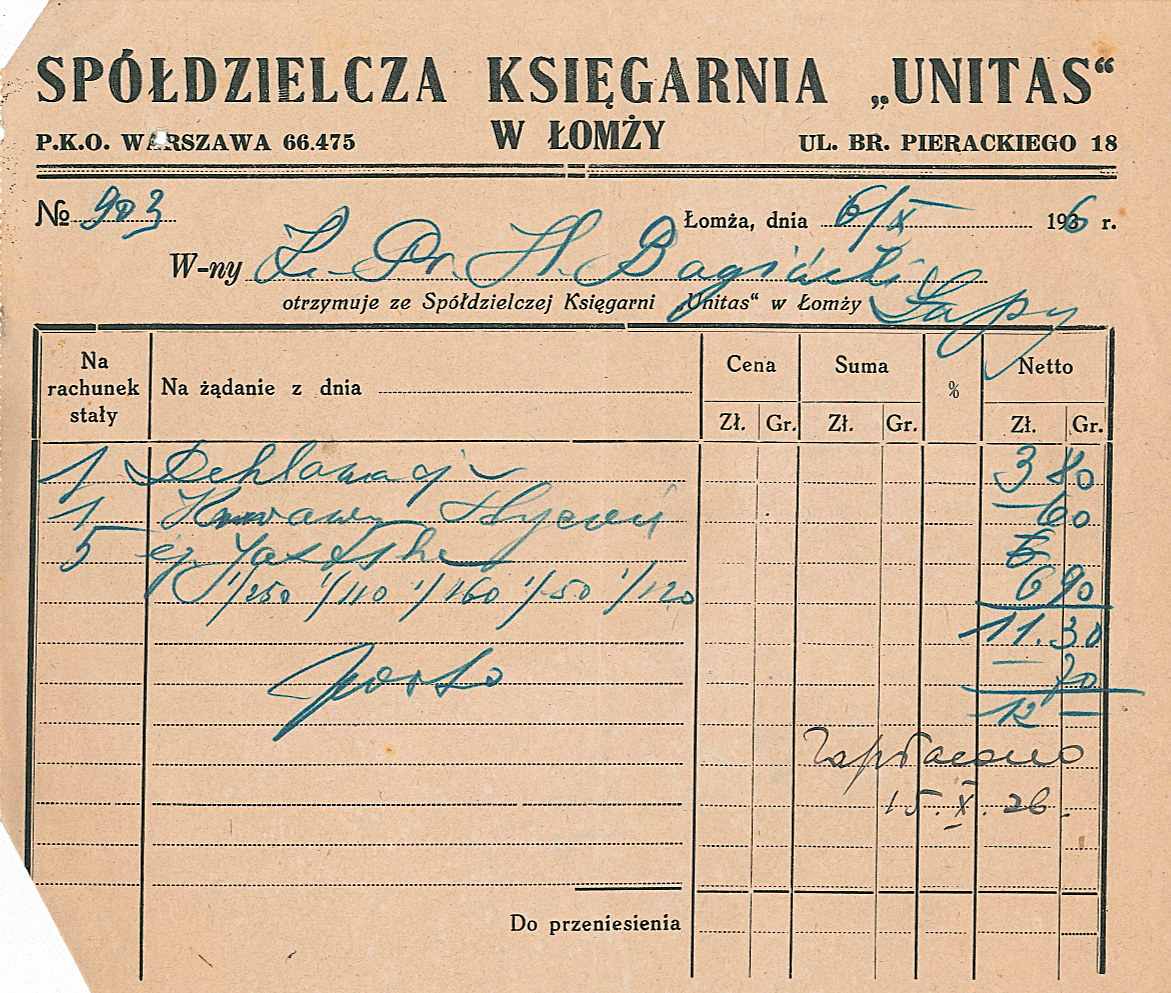 SPÓŁDZIELCZA KSIĘGARNIA „UNITAS“
P.K.O. WARSZAWA 66.475 W ŁOMŻY UL. BR. PIERACKIEGO 18
№ 903 Łomża, dnia 6/X 1936 r.
W-ny H. Bagiński
otrzymuje ze Spółdzielczej Księgarni „Unitas“ w Łomży Łapy
Na rachunek stały Na żądanie z dnia Cena Suma % Netto
Zł. Gr. Zł. Gr. Zł. Gr.
1 Deklamacje 3 80
1 Krwawy Styczeń — 60
5 eg. Jasełka
1/250 1/110 1/160 1/50 1/120 6 90
11.30
porto — 70
12 —
Zapłacono
15.X.36.
Do przeniesienia